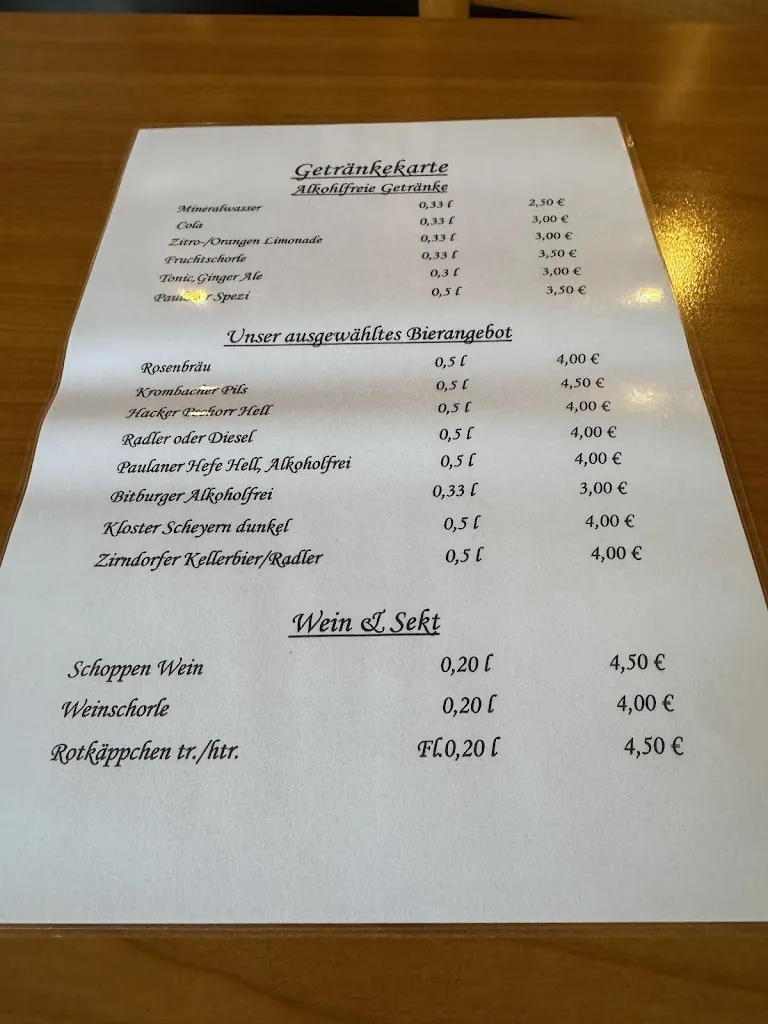 Getränkekarte
Alkohlfreie Getränke
Mineralwasser 0,33 l 2,50 €
Cola 0,33 l 3,00 €
Zitro-/Orangen Limonade 0,33 l 3,00 €
Fruchtschorle 0,33 l 3,50 €
Tonic, Ginger Ale 0,3 l 3,00 €
Paulaner Spezi 0,5 l 3,50 €
Unser ausgewähltes Bierangebot
Rosenbräu 0,5 l 4,00 €
Krombacher Pils 0,5 l 4,50 €
Hacker Pschorr Hell 0,5 l 4,00 €
Radler oder Diesel 0,5 l 4,00 €
Paulaner Hefe Hell, Alkoholfrei 0,5 l 4,00 €
Bitburger Alkoholfrei 0,33 l 3,00 €
Kloster Scheyern dunkel 0,5 l 4,00 €
Zirndorfer Kellerbier/Radler 0,5 l 4,00 €
Wein & Sekt
Schoppen Wein 0,20 l 4,50 €
Weinschorle 0,20 l 4,00 €
Rotkäppchen tr./htr. Fl.0,20 l 4,50 €